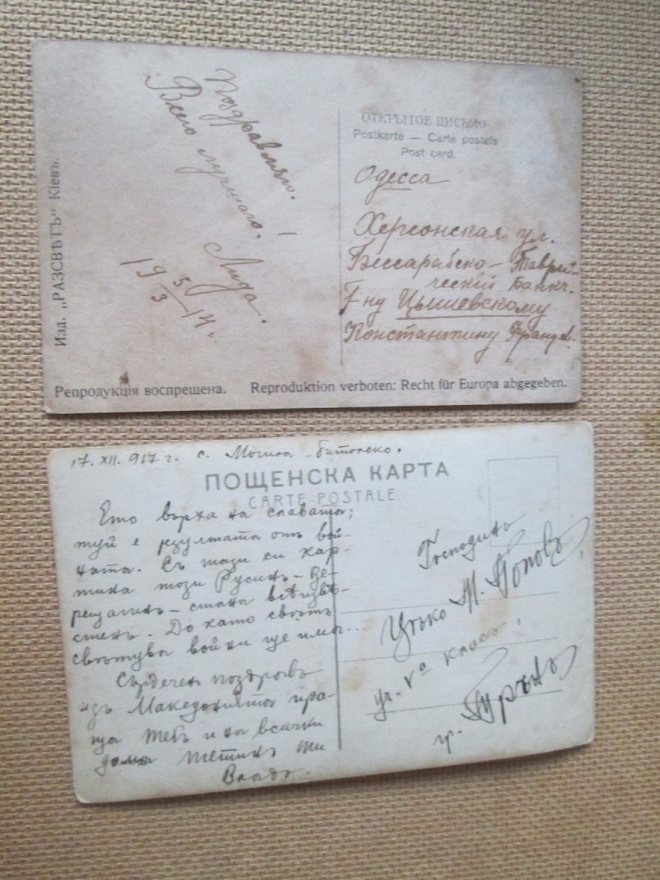 Поздравляю!
Всего лучшаго.
Лида.
19 5/3 14 г.
Изд. „РАЗСВѢТЪ“ Кіевъ.
ОТКРЫТОЕ ПИСЬМО
Postkarte — Carte postale
Post card.
Одесса
Херсонская ул.
Бессарабско - Таври-
ческій банк.
Г-ну Цышевскому
Константину
Репродукція воспрещена. Reproduktion verboten: Recht für Europa abgegeben.
17. XII. 917 г. с. Могила - Битолско.
ПОЩЕНСКА КАРТА
CARTE-POSTALE
Ето върха на славата;
туй е резултата отъ вой-
ната. Съ тази си кар-
тина този Русинъ - Ве-
рещагинъ - стана всеизвѣ-
стенъ. До като свѣтъ
свѣтува войни ще има...
Сърдеченъ поздравъ
изъ Македонията пра-
ща тебѣ и на всички
дома
Владъ.
Господинъ
Цѣнко М. Поповъ,
уч. V° класъ!
гр.